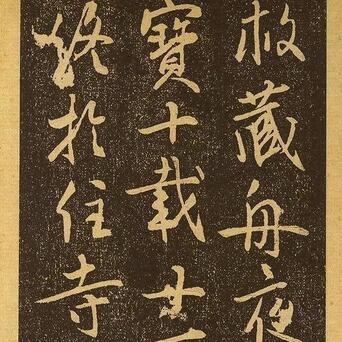 藏舟夜
寶十載廿
終於住寺